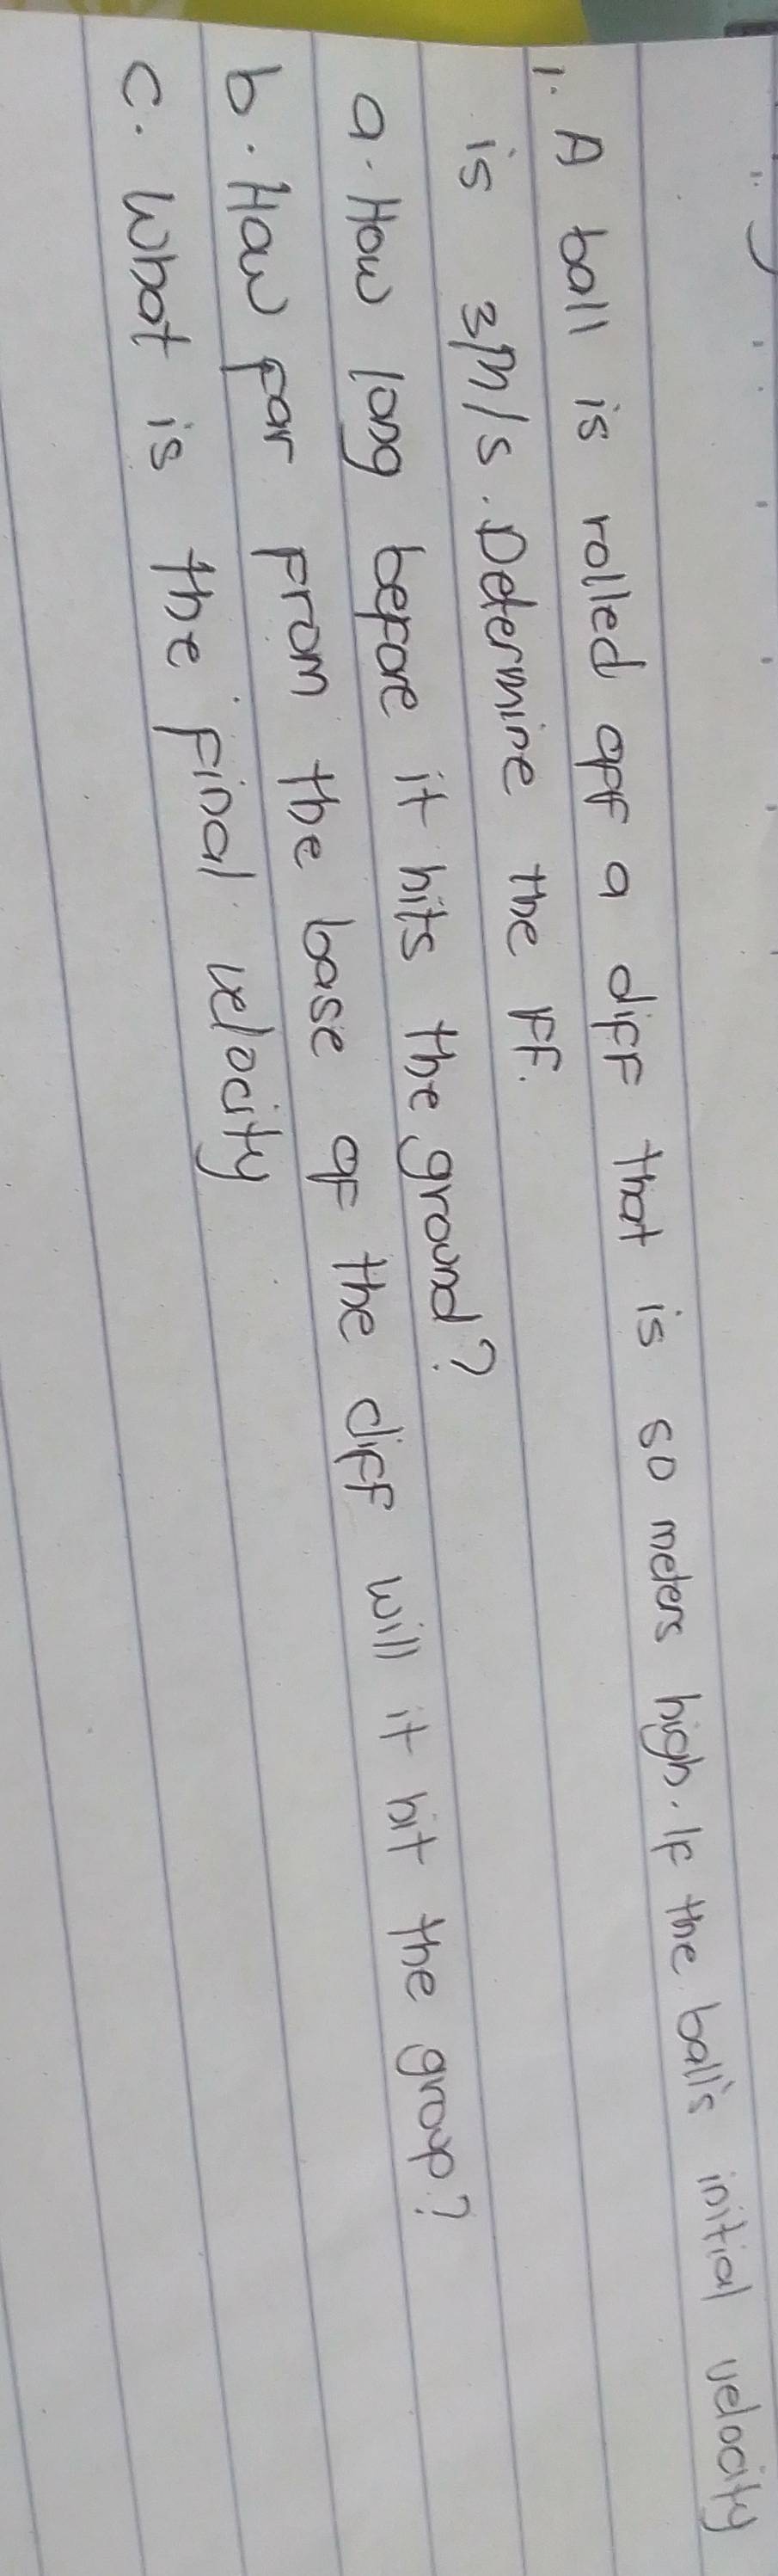 1. A ball is rolled off a cliff that is 50 meters high. If the ball's initial velocity
is 3m/s. Determine the ff.
a. How long before it hits the ground?
b. How far from the base of the cliff will it hit the group?
c. What is the final velocity